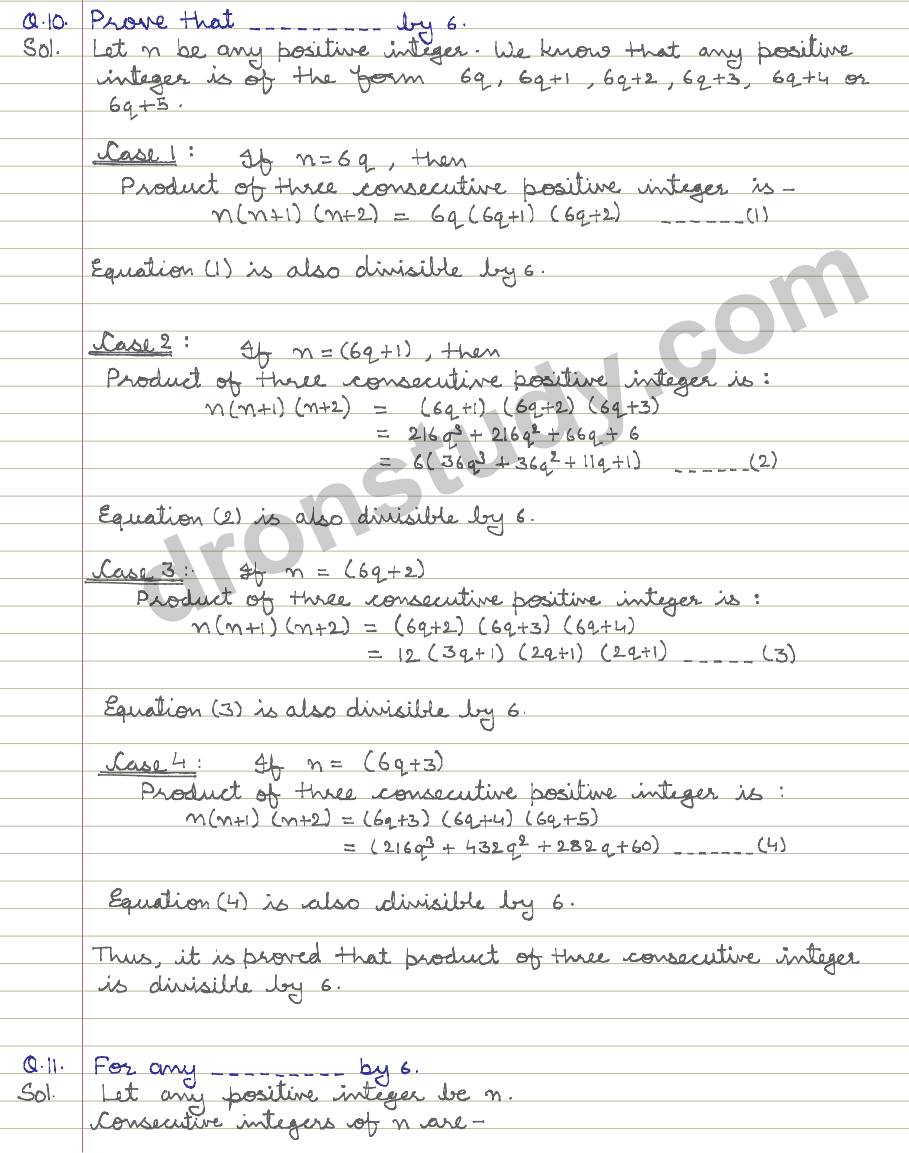 Q.10. Prove that _ _ _ _ _ _ _ _ _ by 6.
Sol. Let n be any positive integer. We know that any positive
integer is of the form 6q, 6q+1, 6q+2, 6q+3, 6q+4 or
6q+5.
Case 1: If n=6q, then
Product of three consecutive positive integer is -
n(n+1)(n+2) = 6q(6q+1)(6q+2) ------(1)
Equation (1) is also divisible by 6.
Case 2: If n=(6q+1), then
Product of three consecutive positive integer is:
n(n+1)(n+2) = (6q+1)(6q+2)(6q+3)
= 216q³ + 216q² + 66q + 6
= 6(36q³ + 36q² + 11q + 1) ------(2)
Equation (2) is also divisible by 6.
Case 3: If n = (6q+2)
Product of three consecutive positive integer is:
n(n+1)(n+2) = (6q+2)(6q+3)(6q+4)
= 12(3q+1)(2q+1)(2q+1) -----(3)
Equation (3) is also divisible by 6.
Case 4: If n = (6q+3)
Product of three consecutive positive integer is:
n(n+1)(n+2) = (6q+3)(6q+4)(6q+5)
= (216q³ + 432q² + 282q + 60) -------(4)
Equation (4) is also divisible by 6.
Thus, it is proved that product of three consecutive integer
is divisible by 6.
Q.11. For any _ _ _ _ _ _ _ _ _ by 6.
Sol. Let any positive integer be n.
Consecutive integers of n are-
dronstudy.com